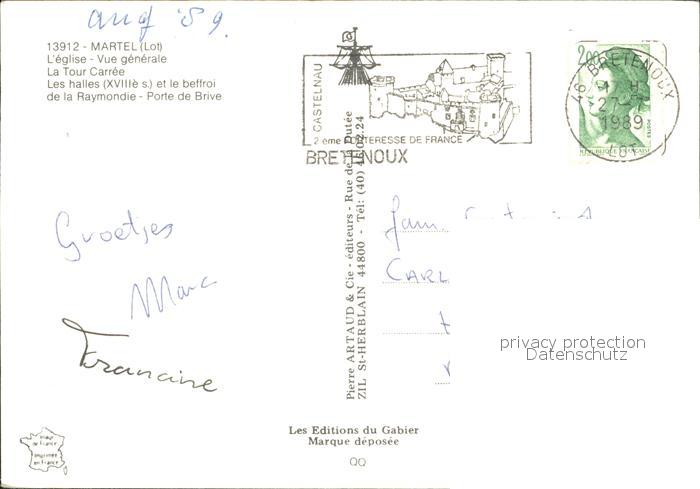 aug '89.
13912 - MARTEL (Lot)
L'église - Vue générale
La Tour Carrée
Les halles (XVIIIè s.) et le beffroi
de la Raymondie - Porte de Brive
CASTELNAU
2ème FORTERESSE DE FRANCE
BRETENOUX
2,00
POSTES
REPUBLIQUE FRANÇAISE
46 BRETENOUX
H
27-
1989
LOT
Groetjes
Marc
Francine
Pierre ARTAUD & Cie - éditeurs - Rue de la Dutée
ZIL St-HERBLAIN 44800 - Tél: (40) 46.02.24
Fam.
CARL
privacy protection
Datenschutz
Les Editions du Gabier
Marque déposée
QQ
image
de France
imprimée
en France